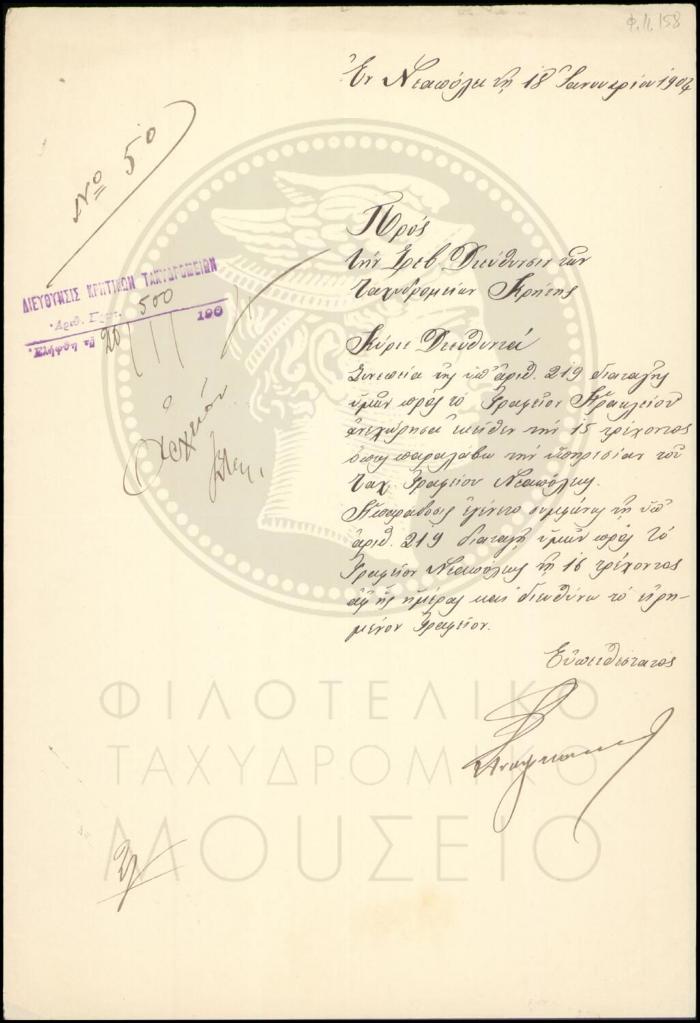 Φ.11.158
Ἐν Νεαπόλει τῇ 18 Ἰανουαρίου 1904
Νº 50
Πρός
τὴν Σεβ. Διεύθυνσιν τῶν
ταχυδρομείων Κρήτης
ΔΙΕΥΘΥΝΣΙΣ ΚΡΗΤΙΚΩΝ ΤΑΧΥΔΡΟΜΕΙΩΝ
Ἀριθ. Πρωτ. 500
Ἐλήφθη τῇ 20 190
Κύριε Διευθυντά
Συνεπείᾳ τῆς ὑπ' ἀριθ. 219 διαταγῆς
ὑμῶν πρὸς τὸ Γραφεῖον Ἡρακλείου
ἀνεχώρησα ἐκεῖθεν τὴν 15 τρέχοντος
ὅπως παραλάβω τὴν ὑπηρεσίαν τοῦ
ταχ. Γραφείου Νεαπόλεως.
Ἡ παράδοσις ἐγένετο συμφώνως τῇ ὑπ'
ἀριθ. 219 διαταγῇ ὑμῶν πρὸς τὸ
Γραφεῖον Νεαπόλεως τῇ 16 τρέχοντος
ἀφ' ἧς ἡμέρας καὶ διευθύνω τὸ εἰρη-
μένον Γραφεῖον.
Εὐπειθέστατος
ΦΙΛΟΤΕΛΙΚΟ
ΤΑΧΥΔΡΟΜΙΚΟ
ΜΟΥΣΕΙΟ